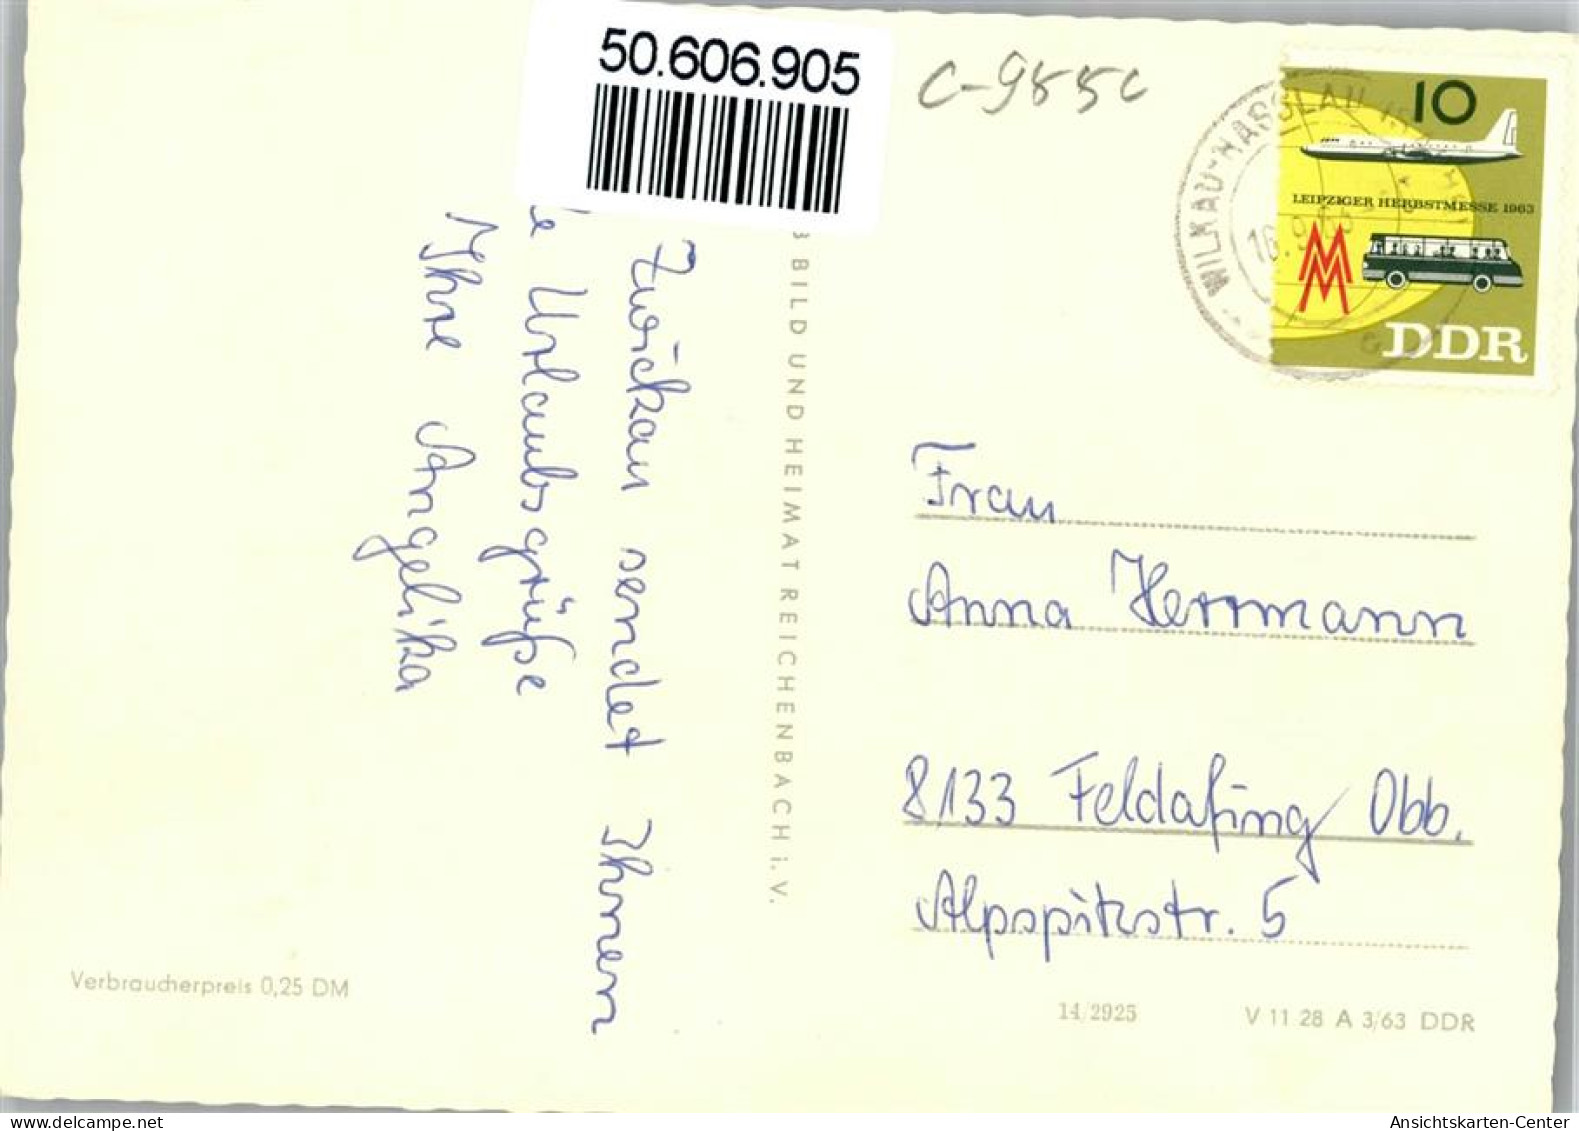 50.606.905
C-9855c
WILKAU-HASSLAU
16.9.63
10
LEIPZIGER HERBSTMESSE 1963
MM
DDR
Zwickau sendet Ihnen
Urlaubsgrüße
Ihre Angelika
BILD UND HEIMAT REICHENBACH i. V.
Frau
Anna Herrmann
8133 Feldafing Obb.
Alpspitzstr. 5
Verbraucherpreis 0,25 DM
14/2925
V 11 28 A 3/63 DDR
Ansichtskarten-Center
delcampe.net